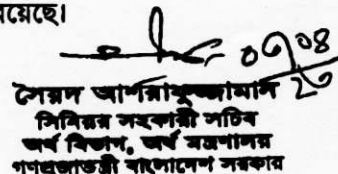 য়েছে।
০৭/০৪
২০
সৈয়দ আশরাফুজ্জামান
সিনিয়র সহকারী সচিব
অর্থ বিভাগ, অর্থ মন্ত্রণালয়
গণপ্রজাতন্ত্রী বাংলাদেশ সরকার